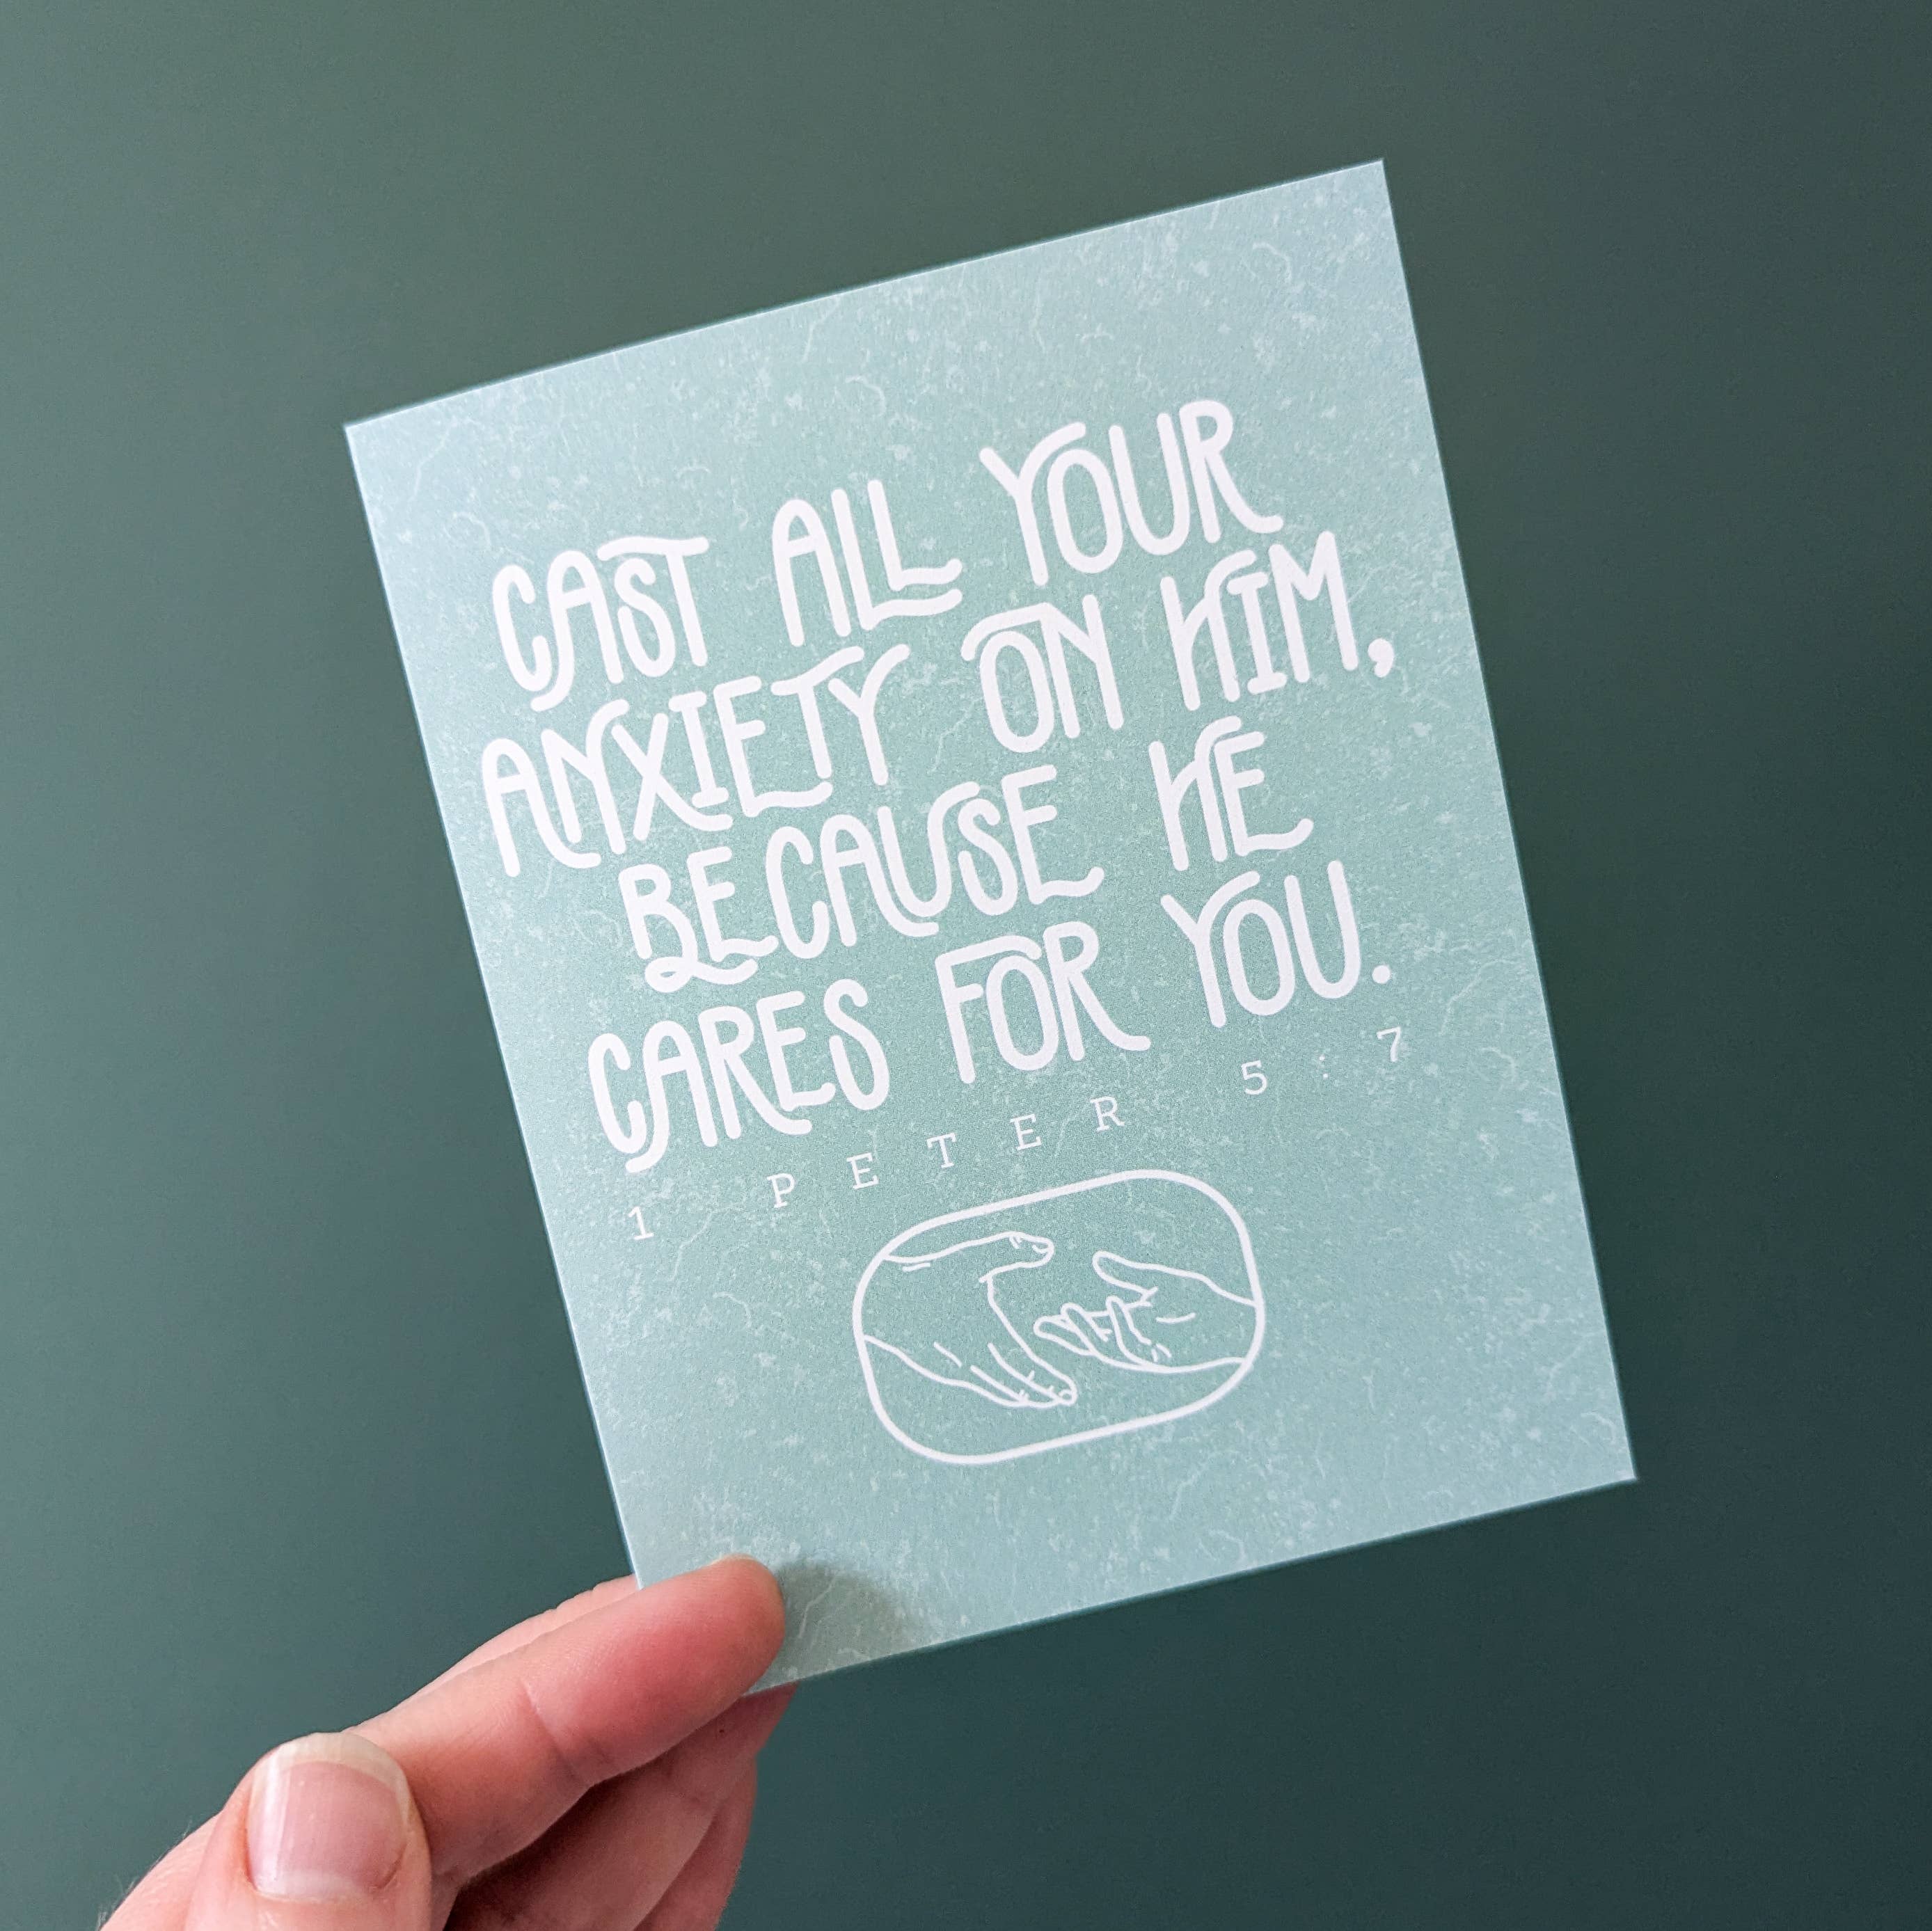 CAST ALL YOUR
ANXIETY ON HIM,
BECAUSE HE
CARES FOR YOU.
1 PETER 5:7